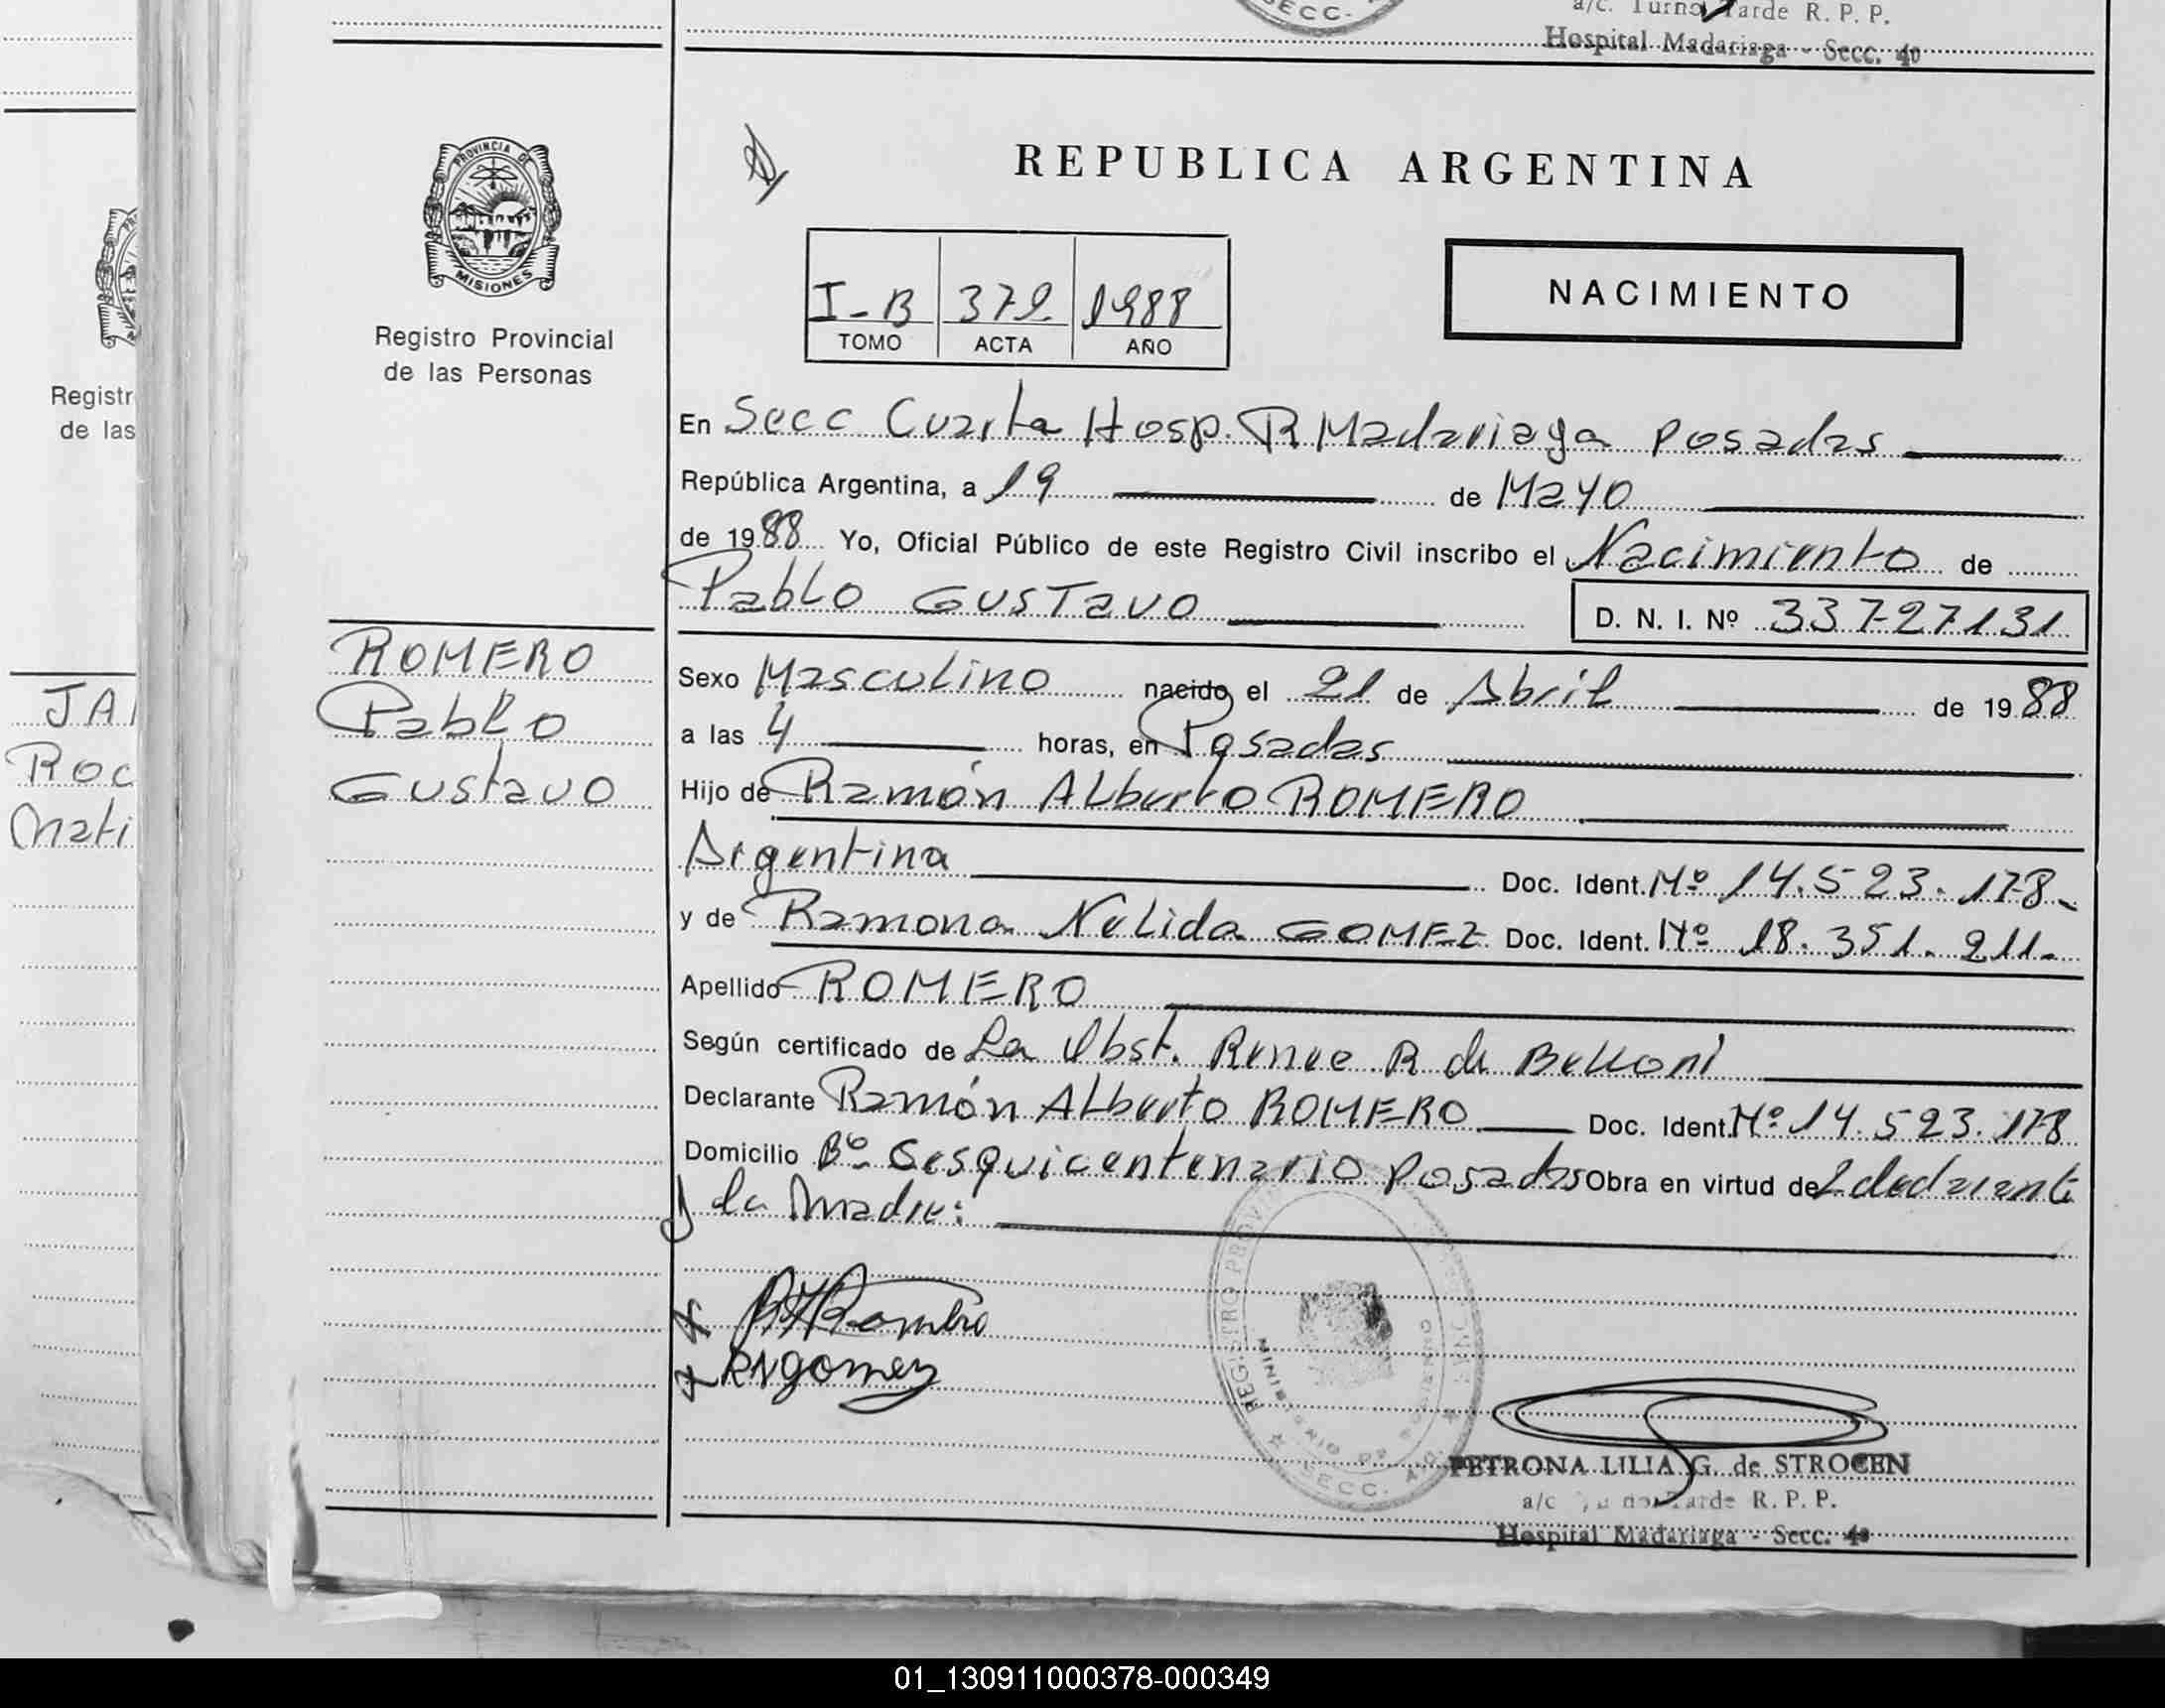 SECC.
a/c. Turno Tarde R. P. P.
Hospital Madariaga - Secc. 4º
PROVINCIA DE
MISIONES
Registro Provincial
de las Personas
REPUBLICA ARGENTINA
I-B 379. 1988
TOMO ACTA AÑO
NACIMIENTO
Registr
de las
En Secc Cuarta Hosp. R Madariaga Posadas
República Argentina, a 19 de Mayo
de 1988 Yo, Oficial Público de este Registro Civil inscribo el Nacimiento de
Pablo Gustavo D. N. I. Nº 33727131
ROMERO
Pablo
Gustavo
JA
Roc
Mati
Sexo Masculino nacido el 21 de Abril de 1988
a las 4 horas, en Posadas
Hijo de Ramón Alberto ROMERO
Argentina Doc. Ident. Nº 14.523.178-
y de Ramona Nelida GOMEZ Doc. Ident. Nº 18.351.211-
Apellido ROMERO
Según certificado de La Obst. Renee R de Belloni
Declarante Ramón Alberto ROMERO Doc. Ident. Nº 14.523.178
Domicilio Bº Sesquicentenario Posadas Obra en virtud de
y la Madre:
RARomero
RNgomez
REGISTRO PROVIN
SECC.
PETRONA LILIA G. de STROCEN
a/c Turno Tarde R. P. P.
Hospital Madariaga - Secc. 4º
01_130911000378-000349